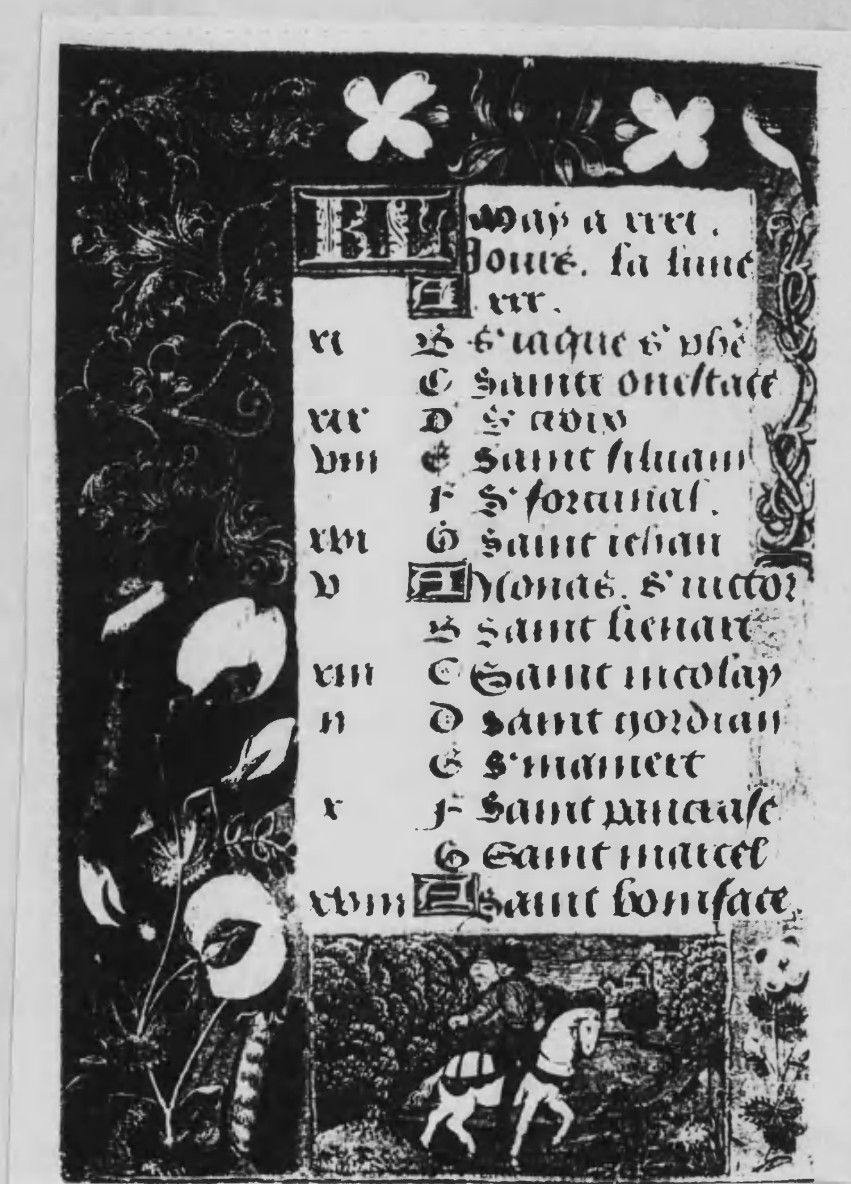 KL May a xxxi.
Jours. la lune
A xxx.
xi B S' iaque s' phē
C Sainte onestace
xix D S' croix
viii E Saint siluain
F S' fortunat.
xvi G Saint iehan
v A Nonas. S' victor
B Saint lienart
xiii C Saint nicolay
ii D Saint gordian
E S' mamert
x F Saint pancrase
G Saint marcel
xviii A Saint boniface.